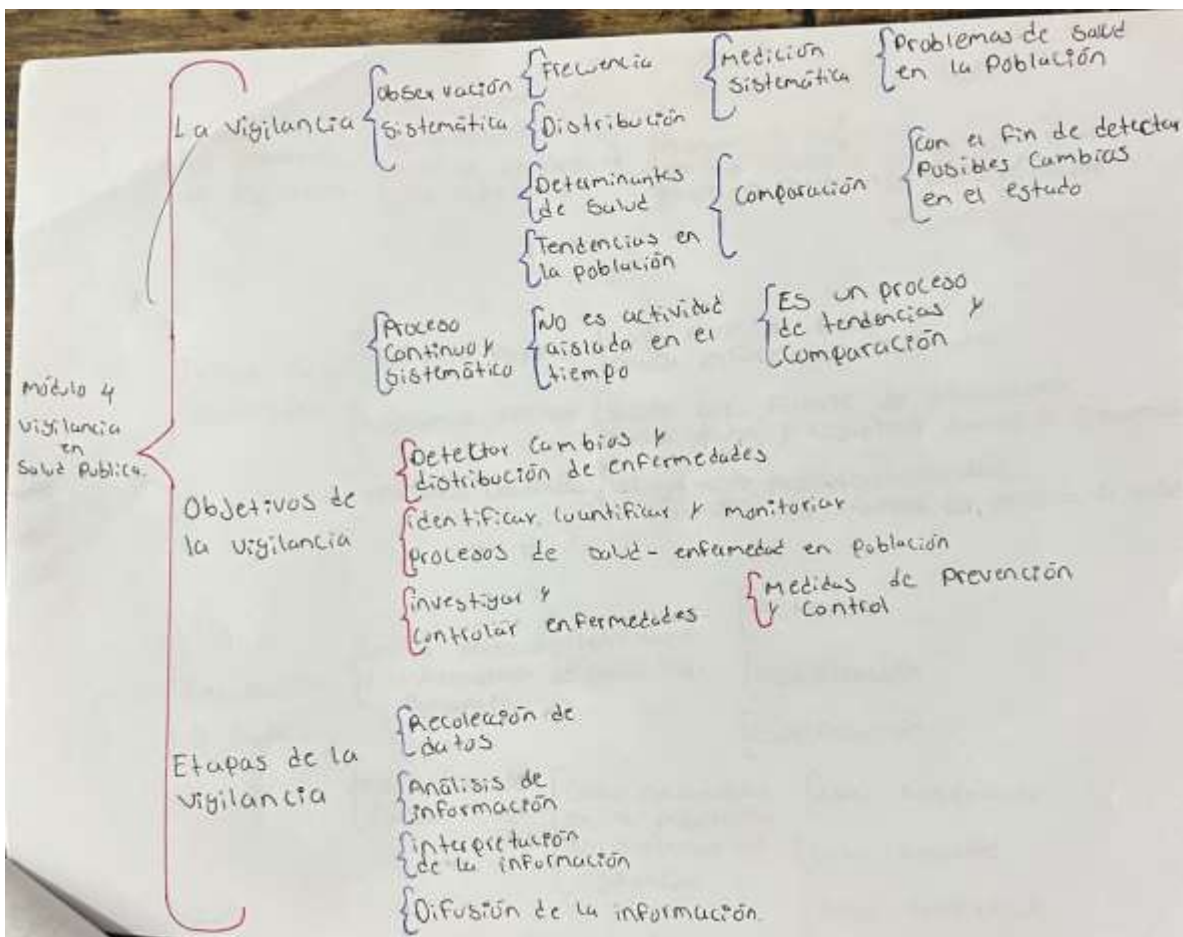 Módulo 4
Vigilancia
en
Salud Pública.
La vigilancia
Observación
sistemática
Frecuencia
Distribución
Determinantes
de salud
Tendencias en
la población
Medición
sistemática
Problemas de salud
en la población
Comparación
Con el fin de detectar
posibles cambios
en el estado
Proceso
continuo y
sistemático
No es actividad
aislada en el
tiempo
Es un proceso
de tendencias y
comparación
Objetivos de
la vigilancia
Detectar cambios y
distribución de enfermedades
identificar, cuantificar y monitoriar
procesos de salud - enfermedad en población
investigar y
controlar enfermedades
Medidas de prevención
y control
Etapas de la
vigilancia
Recolección de
datos
Análisis de
información
interpretación
de la información
Difusión de la información.